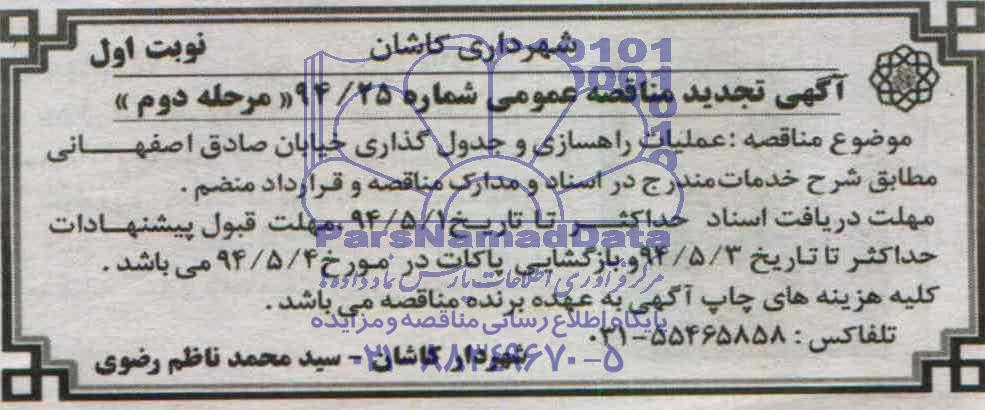 شهرداری کاشان
نوبت اول
آگهی تجدید مناقصه عمومی شماره ۹۴/۲۵ « مرحله دوم »
موضوع مناقصه : عملیات راهسازی و جدول گذاری خیابان صادق اصفهانی
مطابق شرح خدمات مندرج در اسناد و مدارک مناقصه و قرارداد منضم .
مهلت دریافت اسناد حداکثر تا تاریخ ۹۴/۵/۱ ،مهلت قبول پیشنهادات
حداکثر تا تاریخ ۹۴/۵/۳ و بازگشایی پاکات در مورخ ۹۴/۵/۴ می باشد .
کلیه هزینه های چاپ آگهی به عهده برنده مناقصه می باشد .
تلفاکس : ۵۵۴۶۵۸۵۸-۰۳۱
شهردار کاشان - سید محمد ناظم رضوی
ParsNamadData
مرکز فرآوری اطلاعات پارس نماد داده ها
پایگاه اطلاع رسانی مناقصه و مزایده
۰۲۱-۸۸۳۴۹۶۷۰-۵